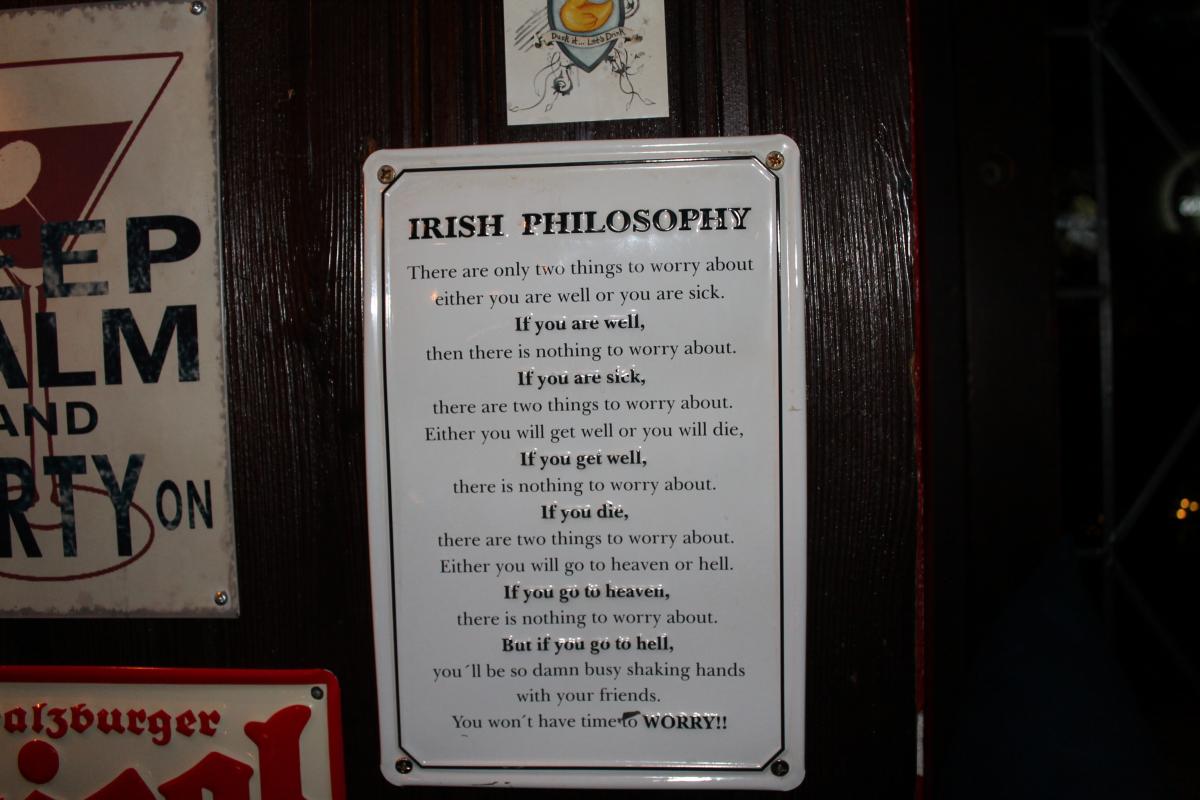 Duck it... Let's Drink
EEP
ALM
AND
RTY ON
IRISH PHILOSOPHY
There are only two things to worry about
either you are well or you are sick.
If you are well,
then there is nothing to worry about.
If you are sick,
there are two things to worry about.
Either you will get well or you will die,
If you get well,
there is nothing to worry about.
If you die,
there are two things to worry about.
Either you will go to heaven or hell.
If you go to heaven,
there is nothing to worry about.
But if you go to hell,
you´ll be so damn busy shaking hands
with your friends.
You won´t have time to WORRY!!
alzburger